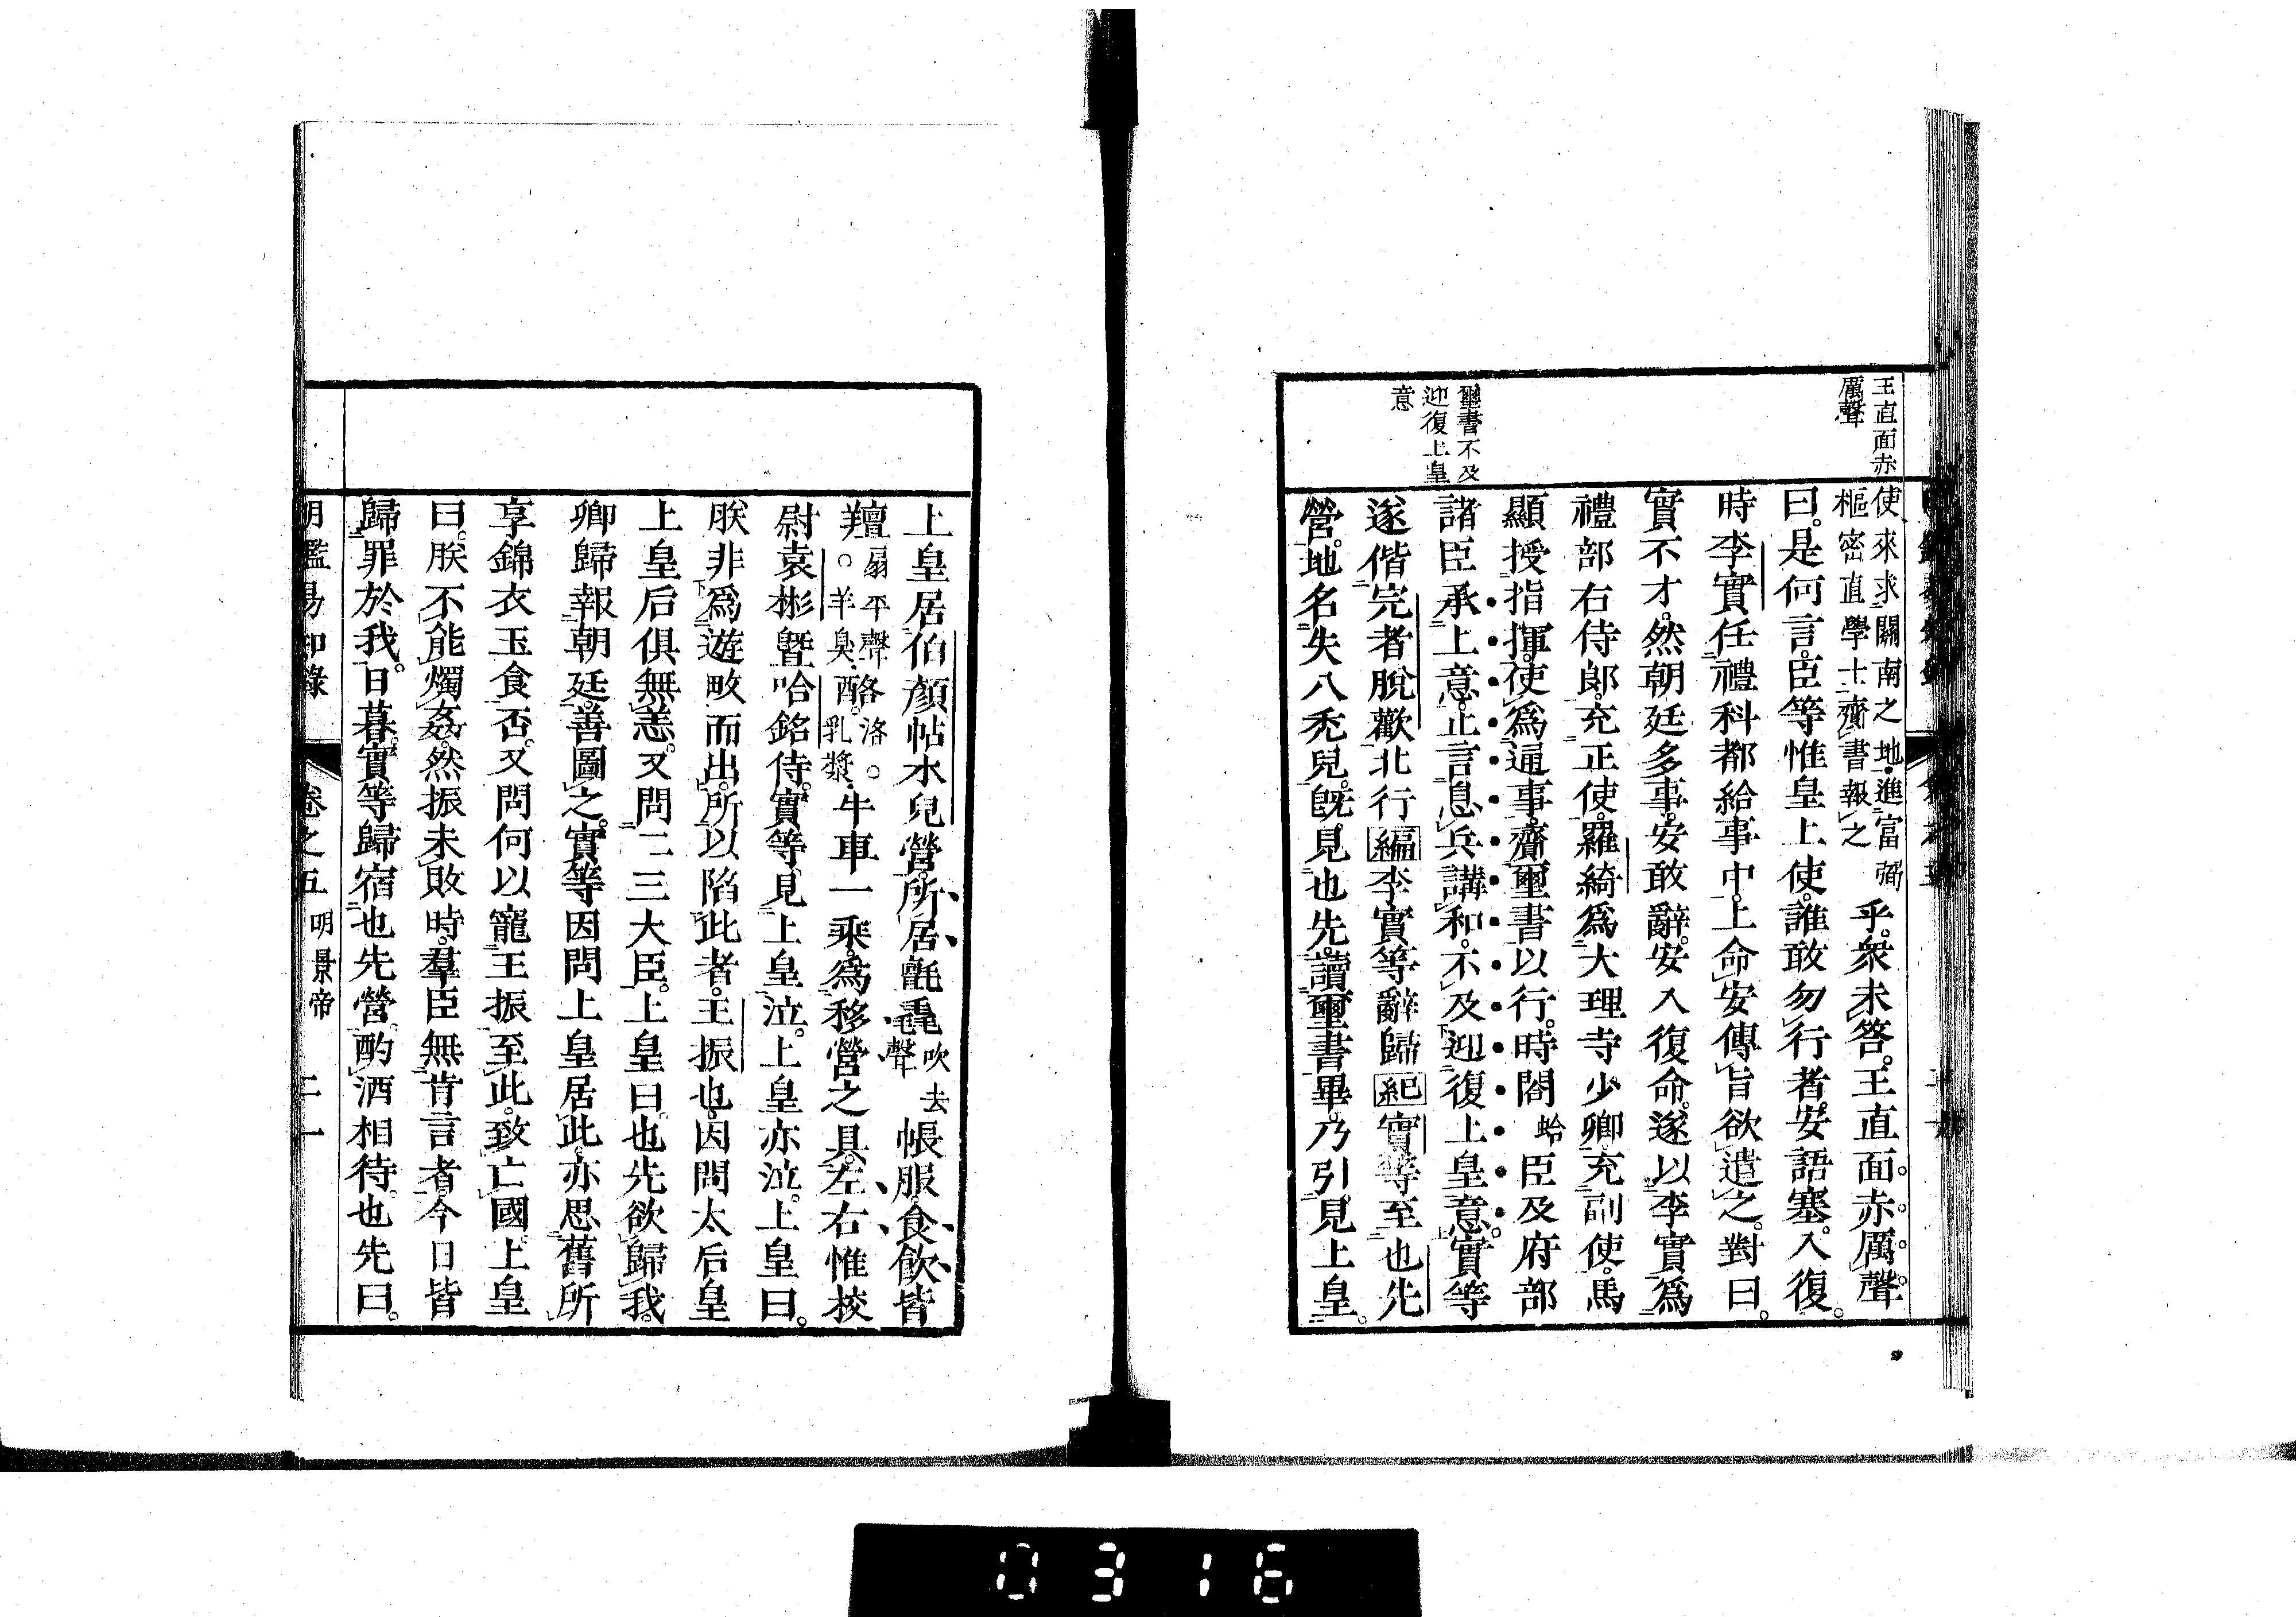 王直面赤
厲聲
璽書不及
迎復上皇
意
使來求關南之地進富弼
樞密直學士齎書報之
乎。衆未答。王直面赤厲聲
曰。是何言。臣等惟皇上使。誰敢勿行者。安語塞。入復。
時李實任禮科都給事中。上命安傳旨欲遣之。對曰。
實不才。然朝廷多事。安敢辭。安入復命。遂以李實爲
禮部右侍郎。充正使。羅綺爲大理寺少卿。充副使。馬
顯授指揮。使爲通事。齎璽書以行。時閤蛤臣及府部
諸臣承上意。止言息兵講和。不及迎復上皇意。實等
遂偕完者脫歡北行編李實等辭歸紀實等至也先
營。地名失八禿兒。旣見也先。讀璽書畢。乃引見上皇。
上皇居伯顏帖木兒營。所居氈毳吹去聲帳服。食飲皆
羶扇平聲。羊臭。酪洛。乳漿。牛車一乘。爲移營之具。左右惟挍
尉袁彬暨哈銘侍。實等見上皇泣。上皇亦泣。上皇曰。
朕非爲遊畋而出。所以陷此者。王振也。因問太后皇
上皇后俱無恙。又問二三大臣。上皇曰。也先欲歸我。
卿歸報朝廷。善圖之。實等因問上皇居此。亦思舊所
享錦衣玉食否。又問何以寵王振至此。致亡國。上皇
曰。朕不能燭姦。然振未敗時。羣臣無肯言者。今日皆
歸罪於我。日暮。實等歸宿也先營。酌酒相待。也先曰。
明鑑易知錄 卷之五 明景帝 二一
0316